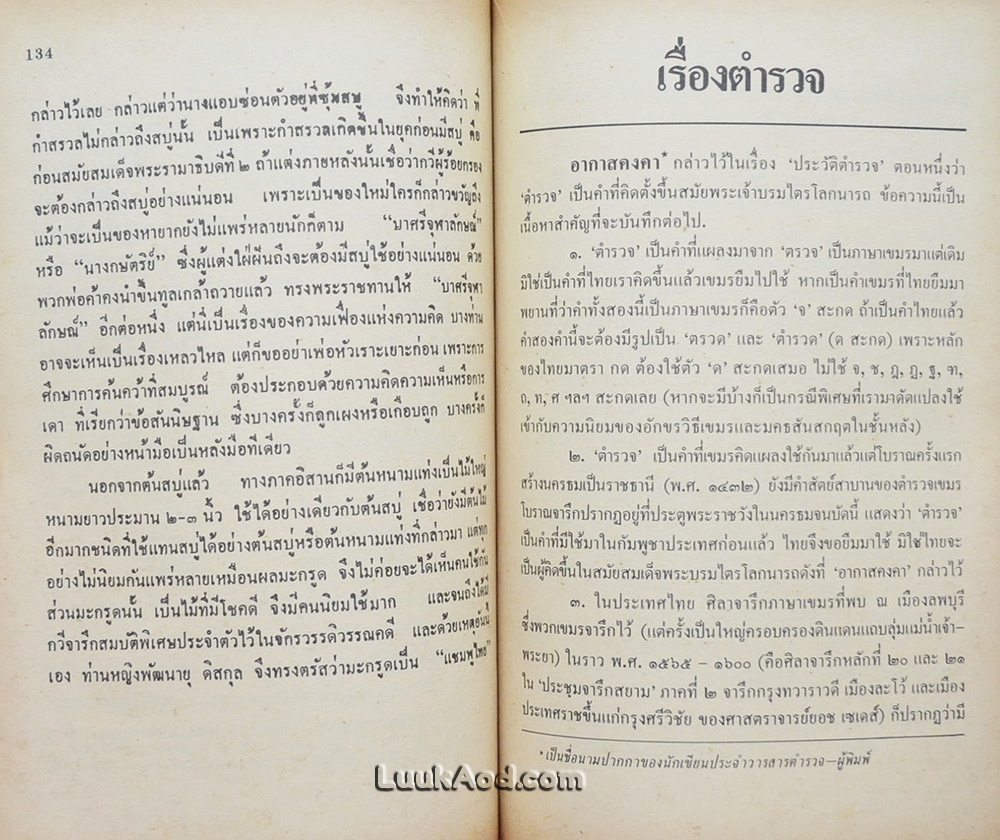 134
กล่าวไว้เลย กล่าวแต่ว่านางแอบซ่อนตัวอยู่ที่ซุ้มสบู่ จึงทำให้คิดว่า ที่
กำสรวลไม่กล่าวถึงสบู่นั้น เป็นเพราะกำสรวลเกิดขึ้นในยุคก่อนมีสบู่ คือ
ก่อนสมัยสมเด็จพระรามาธิบดีที่ ๒ ถ้าแต่งภายหลังนั้นเชื่อว่ากวีผู้ร้อยกรอง
จะต้องกล่าวถึงสบู่อย่างแน่นอน เพราะเป็นของใหม่ใครก็กล่าวขวัญถึง
แม้ว่าจะเป็นของหายากยังไม่แพร่หลายนักก็ตาม “บาศรีจุฬาลักษณ์”
หรือ “นางกษัตริย์” ซึ่งผู้แต่งใฝ่ฝันถึงจะต้องมีสบู่ใช้อย่างแน่นอน ด้วย
พวกพ่อค้าคงนำขึ้นทูลเกล้าถวายแล้ว ทรงพระราชทานให้ “บาศรีจุฬา
ลักษณ์” อีกต่อหนึ่ง แต่นี่เป็นเรื่องของความเฟื่องแห่งความคิด บางท่าน
อาจจะเห็นเป็นเรื่องเหลวไหล แต่ก็ขออย่าเพ่อหัวเราะเยาะก่อน เพราะการ
ศึกษาการค้นคว้าที่สมบูรณ์ ต้องประกอบด้วยความคิดความเห็นหรือการ
เดา ที่เรียกว่าข้อสันนิษฐาน ซึ่งบางครั้งก็ถูกเผงหรือเกือบถูก บางครั้งก็
ผิดถนัดอย่างหน้ามือเป็นหลังมือทีเดียว
นอกจากต้นสบู่แล้ว ทางภาคอิสานก็มีต้นหนามแท่งเป็นไม้ใหญ่
หนามยาวประมาน ๒-๓ นิ้ว ใช้ได้อย่างเดียวกับต้นสบู่ เชื่อว่ายังมีต้นไม้
อีกมากชนิดที่ใช้แทนสบู่ได้อย่างต้นสบู่หรือต้นหนามแท่งที่กล่าวมา แต่ทุก
อย่างไม่นิยมกันแพร่หลายเหมือนผลมะกรูด จึงไม่ค่อยจะได้เห็นคนใช้กัน
ส่วนมะกรูดนั้น เป็นไม้ที่มีโชคดี จึงมีคนนิยมใช้มาก และจนถึงได้มี
กวีจารึกสมบัติพิเศษประจำตัวไว้ในจักรวรรดิวรรณคดี และด้วยเหตุอันนี้
เอง ท่านหญิงพัฒนายุ ดิสกุล จึงทรงตรัสว่ามะกรูดเป็น “แชมพูไทย”
เรื่องตำรวจ
อากาสคงคา* กล่าวไว้ในเรื่อง ‘ประวัติตำรวจ’ ตอนหนึ่งว่า
‘ตำรวจ’ เป็นคำที่คิดตั้งขึ้นสมัยพระเจ้าบรมไตรโลกนารถ ข้อความนี้เป็น
เนื้อหาสำคัญที่จะบันทึกต่อไป.
๑. ‘ตำรวจ’ เป็นคำที่แผลงมาจาก ‘ตรวจ’ เป็นภาษาเขมรมาแต่เดิม
มิใช่เป็นคำที่ไทยเราคิดขึ้นแล้วเขมรยืมไปใช้ หากเป็นคำเขมรที่ไทยยืมมา
พยานที่ว่าคำทั้งสองนี้เป็นภาษาเขมรก็คือตัว ‘จ’ สะกด ถ้าเป็นคำไทยแล้ว
คำสองคำนี้จะต้องมีรูปเป็น ‘ตรวด’ และ ‘ตำรวด’ (ด สะกด) เพราะหลัก
ของไทยมาตรา กด ต้องใช้ตัว ‘ด’ สะกดเสมอ ไม่ใช้ จ, ช, ฎ, ฏ, ฐ, ฑ,
ถ, ท, ศ ฯลฯ สะกดเลย (หากจะมีบ้างก็เป็นกรณีพิเศษที่เรามาดัดแปลงใช้
เข้ากับความนิยมของอักขรวิธีเขมรและมคธสันสกฤตในชั้นหลัง)
๒. ‘ตำรวจ’ เป็นคำที่เขมรคิดแผลงใช้กันมาแล้วแต่โบราณครั้งแรก
สร้างนครธมเป็นราชธานี (พ.ศ. ๑๔๓๒) ยังมีคำสัตย์สาบานของตำรวจเขมร
โบราณจารึกปรากฏอยู่ที่ประตูพระราชวังในนครธมจนบัดนี้ แสดงว่า ‘ตำรวจ’
เป็นคำที่มีใช้มาในกัมพูชาประเทศก่อนแล้ว ไทยจึงขอยืมมาใช้ มิใช่ไทยจะ
เป็นผู้คิดขึ้นในสมัยสมเด็จพระบรมไตรโลกนารถดังที่ ‘อากาสคงคา’ กล่าวไว้
๓. ในประเทศไทย ศิลาจารึกภาษาเขมรที่พบ ณ เมืองลพบุรี
ซึ่งพวกเขมรจารึกไว้ (แต่ครั้งเป็นใหญ่ครอบครองดินแดนแถบลุ่มแม่น้ำเจ้า-
พระยา) ในราว พ.ศ. ๑๕๖๕ – ๑๖๐๐ (คือศิลาจารึกหลักที่ ๒๐ และ ๒๑
ใน ‘ประชุมจารึกสยาม’ ภาคที่ ๒ จารึกกรุงทวาราวดี เมืองละโว้ และเมือง
ประเทศราชขึ้นแก่กรุงศรีวิชัย ของศาสตราจารย์ยอช เซเดส์) ก็ปรากฏว่ามี
*เป็นชื่อนามปากกาของนักเขียนประจำวารสารตำรวจ—ผู้พิมพ์
LuukAod.com